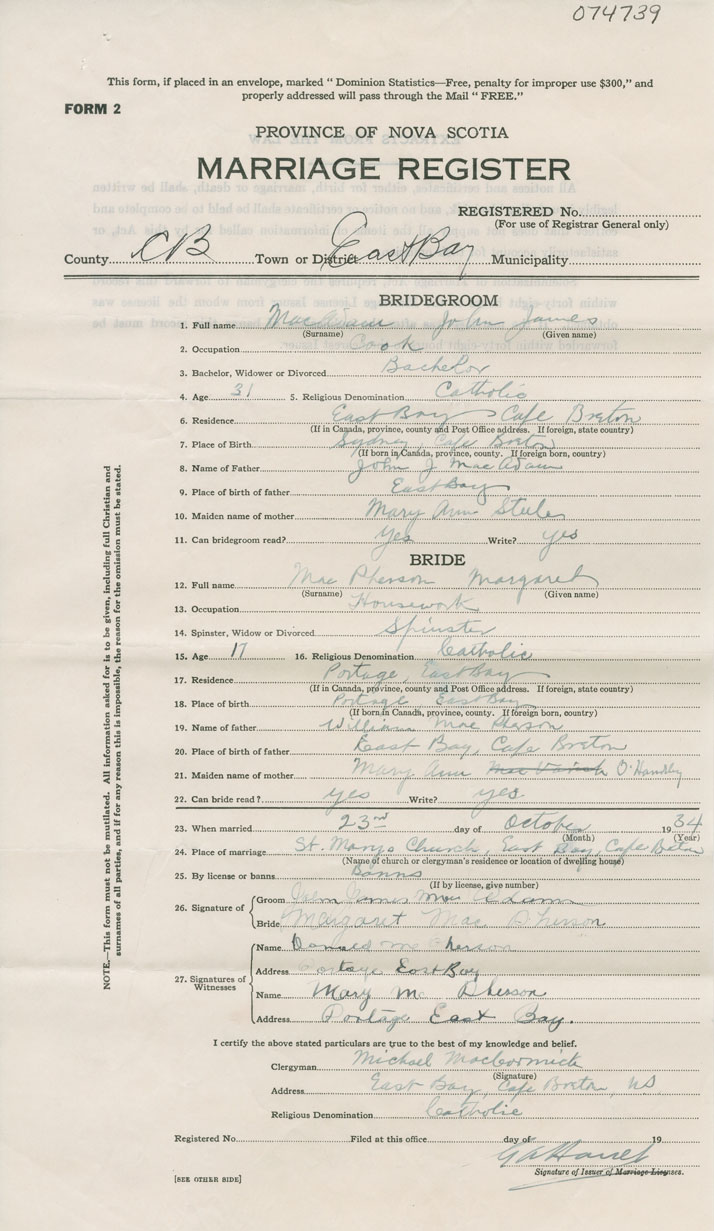 074739
This form, if placed in an envelope, marked " Dominion Statistics—Free, penalty for improper use $300," and
properly addressed will pass through the Mail " FREE."
FORM 2
PROVINCE OF NOVA SCOTIA
MARRIAGE REGISTER
REGISTERED No.
(For use of Registrar General only)
County CB Town or District East Bay Municipality
BRIDEGROOM
1. Full name MacAdam John James
(Surname) (Given name)
2. Occupation Cook
3. Bachelor, Widower or Divorced Bachelor
4. Age 31 5. Religious Denomination Catholic
6. Residence East Bay Cape Breton
(If in Canada, province, county and Post Office address. If foreign, state country)
7. Place of Birth Sydney, Cape Breton
(If born in Canada, province, county. If foreign born, country)
8. Name of Father John J MacAdam
9. Place of birth of father East Bay
10. Maiden name of mother Mary Ann Steele
11. Can bridegroom read? Yes Write? yes
BRIDE
12. Full name Mac Pherson Margaret
(Surname) (Given name)
13. Occupation Housework
14. Spinster, Widow or Divorced Spinster
15. Age 17 16. Religious Denomination Catholic
17. Residence Portage, East Bay
(If in Canada, province, county and Post Office address. If foreign, state country)
18. Place of birth Portage East Bay
(If born in Canada, province, county. If foreign born, country)
19. Name of father William Mac Pherson
20. Place of birth of father East Bay, Cape Breton
21. Maiden name of mother Mary Ann O'Handley
22. Can bride read? yes Write? yes
23. When married 23rd day of October 1934
(Month) (Year)
24. Place of marriage St. Marys Church, East Bay, Cape Breton
(Name of church or clergyman's residence or location of dwelling house)
25. By license or banns Banns
(If by license, give number)
26. Signature of Groom John James Mac Adam
Bride Margaret Mac Pherson
27. Signatures of Witnesses Name Donald Mc Pherson
Address Portage East Bay
Name Mary Mc Pherson
Address Portage East Bay.
I certify the above stated particulars are true to the best of my knowledge and belief.
Clergyman Michael MacCormick
(Signature)
Address East Bay, Cape Breton, NS
Religious Denomination Catholic
Registered No. Filed at this office day of 19
Signature of Issuer of Marriage Licenses.
[SEE OTHER SIDE]
NOTE.—This form must not be mutilated. All information asked for is to be given, including full Christian and
surnames of all parties, and if for any reason this is impossible, the reason for the omission must be stated.